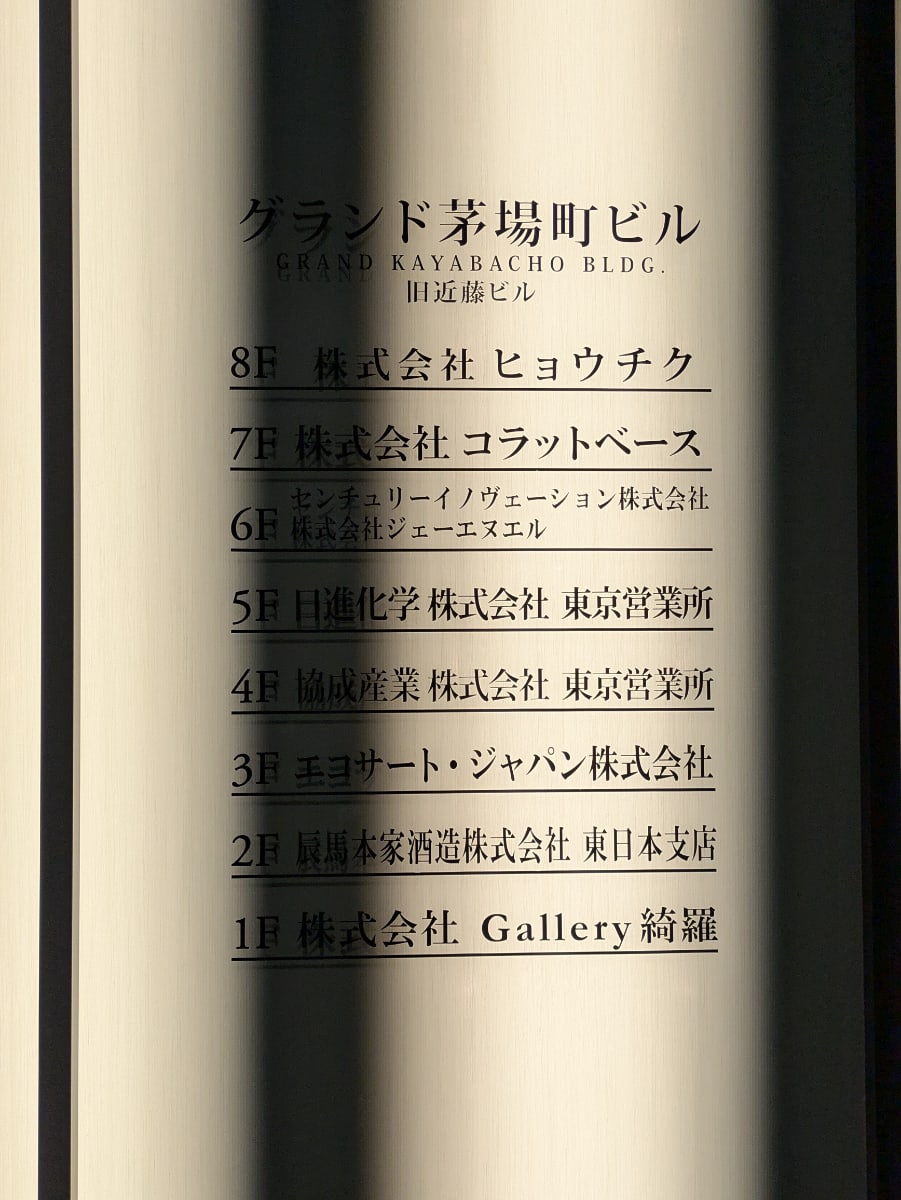 グランド茅場町ビル
GRAND KAYABACHO BLDG.
旧近藤ビル
8F 株式会社 ヒョウチク
7F 株式会社 コラットベース
センチュリーイノヴェーション株式会社
6F 株式会社ジェーエヌエル
5F 日進化学 株式会社 東京営業所
4F 協成産業 株式会社 東京営業所
3F エヨサート・ジャパン株式会社
2F 辰馬本家酒造株式会社 東日本支店
1F 株式会社 Gallery 綺羅